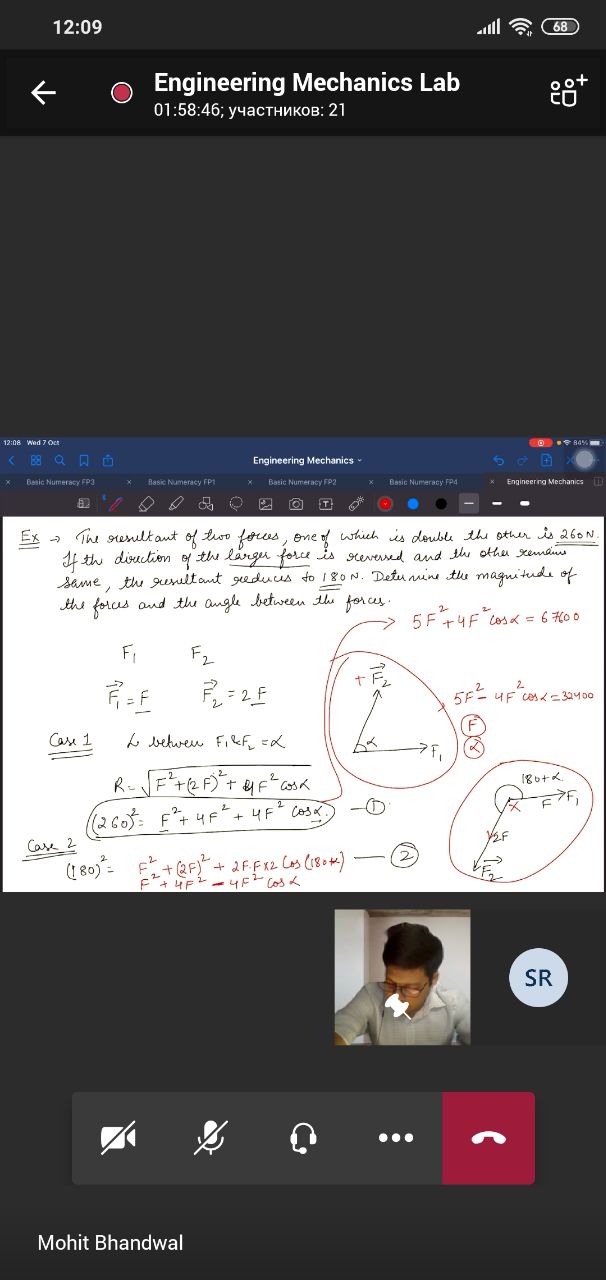 12:09
68
Engineering Mechanics Lab
01:58:46; участников: 21
12:08 Wed 7 Oct
84%
Engineering Mechanics
Basic Numeracy FP3
Basic Numeracy FP1
Basic Numeracy FP2
Basic Numeracy FP4
Engineering Mechanics
Ex → The resultant of two forces, one of which is double the other is 260N.
If th direction of the larger force is reversed and the other remains
same, the resultant reduces to 180 N. Determine the magnitude of
the forces and the angle between the forces.
5F² + 4F² cos α = 67600
F₁ F₂
+ F₂
F₁ = F F₂ = 2F
5F² - 4F² cos α = 32400
F
α
Case 1 ∠ between F₁ & F₂ = α
α
F₁
R = √F² + (2F)² + 4F² cos α
180+α
F F₁
(260)² = F² + 4F² + 4F² cos α. — ①
2F
F₂
Case 2
(180)² = F² + (2F)² + 2F.F×2 Cos (180+α) — ②
F² + 4F² - 4F² cos α
SR
Mohit Bhandwal